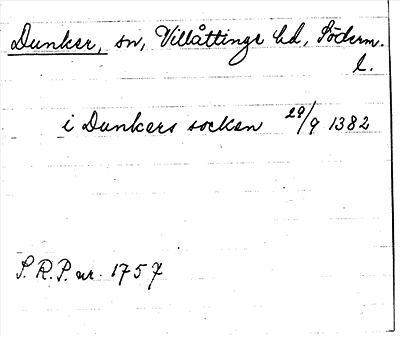 Dunker, sn, Villåttinge hd, Söderm.
l.
i Dunkers socken 29/9 1382
S.R.P. nr. 1757